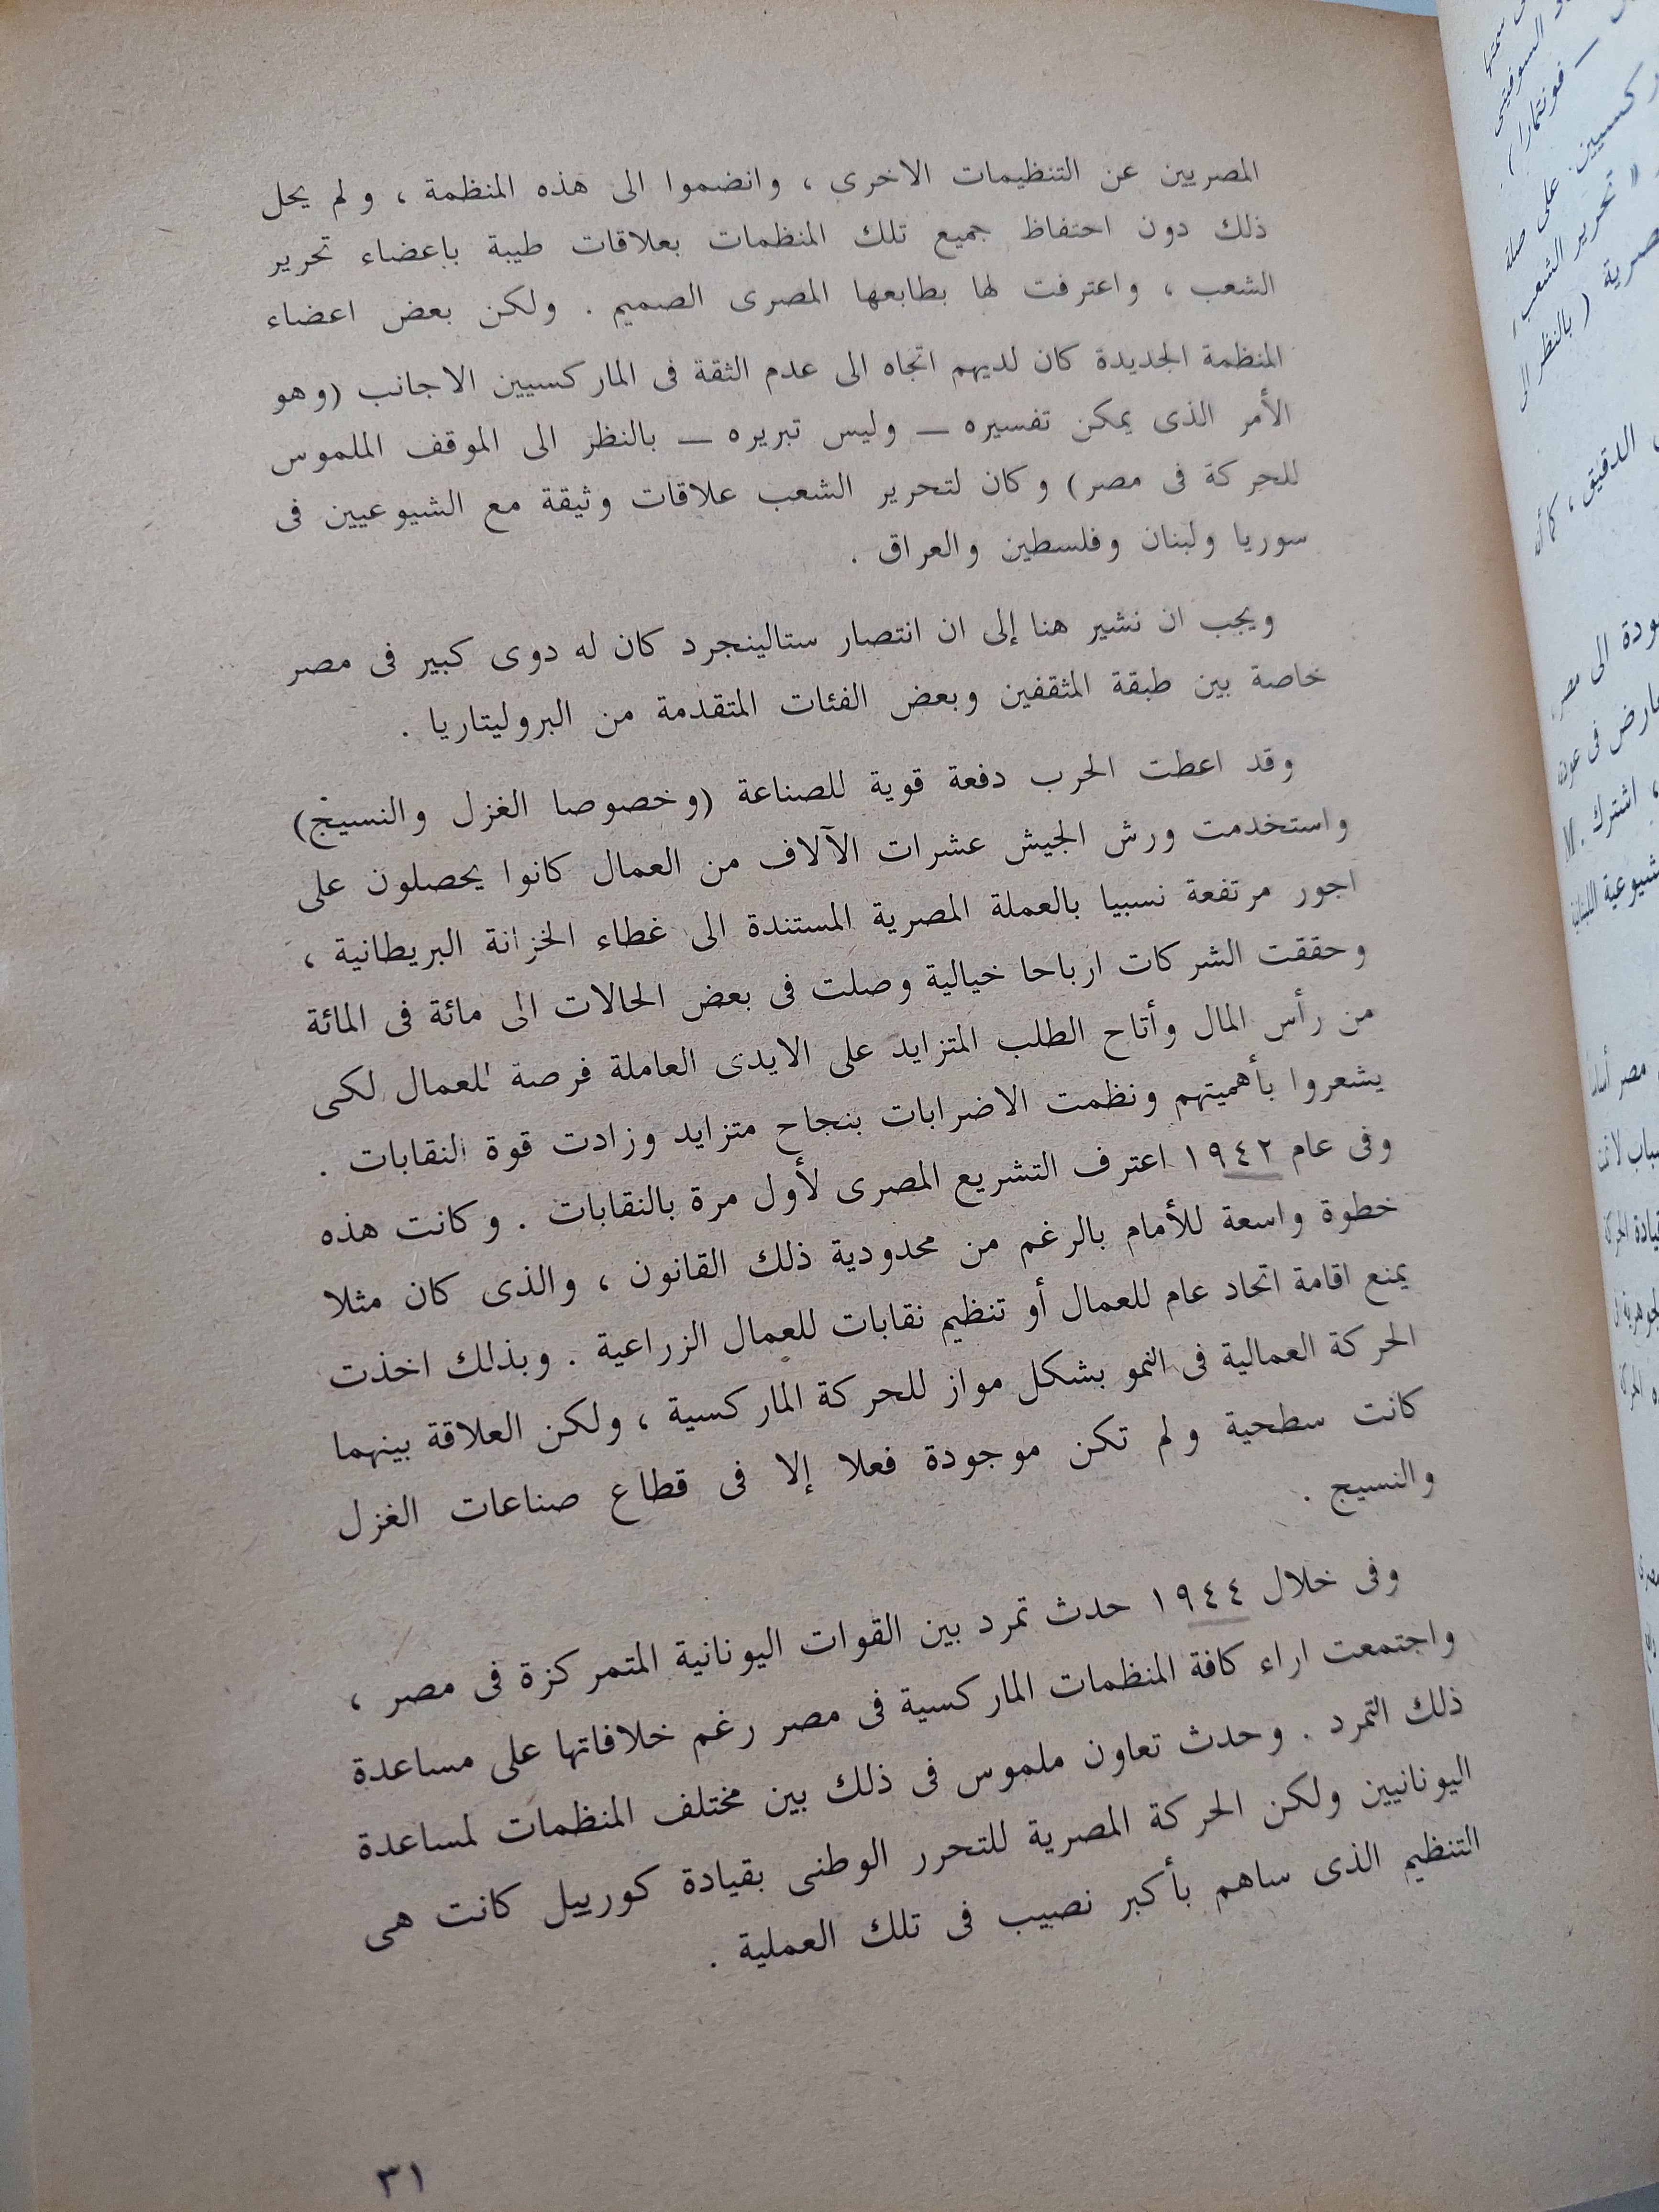 المصريين عن التنظيمات الاخرى ، وانضموا الى هذه المنظمة ، ولم يحل
ذلك دون احتفاظ جميع تلك المنظمات بعلاقات طيبة باعضاء تحرير
الشعب ، واعترفت لها بطابعها المصرى الصميم . ولكن بعض اعضاء
المنظمة الجديدة كان لديهم اتجاه الى عدم الثقة فى الماركسيين الاجانب (وهو
الأمر الذى يمكن تفسيره — وليس تبريره — بالنظر الى الموقف الملموس
للحركة فى مصر) وكان لتحرير الشعب علاقات وثيقة مع الشيوعيين فى
سوريا ولبنان وفلسطين والعراق .
ويجب ان نشير هنا إلى ان انتصار ستالينجرد كان له دوى كبير فى مصر
خاصة بين طبقة المثقفين وبعض الفئات المتقدمة من البروليتاريا .
وقد اعطت الحرب دفعة قوية للصناعة (وخصوصا الغزل والنسيج)
واستخدمت ورش الجيش عشرات الآلاف من العمال كانوا يحصلون على
اجور مرتفعة نسبيا بالعملة المصرية المستندة الى غطاء الخزانة البريطانية ،
وحققت الشركات ارباحا خيالية وصلت فى بعض الحالات الى مائة فى المائة
من رأس المال وأتاح الطلب المتزايد على الايدى العاملة فرصة للعمال لكى
يشعروا بأهميتهم ونظمت الاضرابات بنجاح متزايد وزادت قوة النقابات .
وفى عام ١٩٤٢ اعترف التشريع المصرى لأول مرة بالنقابات . وكانت هذه
خطوة واسعة للأمام بالرغم من محدودية ذلك القانون ، والذى كان مثلا
يمنع اقامة اتحاد عام للعمال أو تنظيم نقابات للعمال الزراعية . وبذلك اخذت
الحركة العمالية فى النمو بشكل مواز للحركة الماركسية ، ولكن العلاقة بينهما
كانت سطحية ولم تكن موجودة فعلا إلا فى قطاع صناعات الغزل
والنسيج .
وفى خلال ١٩٤٤ حدث تمرد بين القوات اليونانية المتمركزة فى مصر ،
واجتمعت اراء كافة المنظمات الماركسية فى مصر رغم خلافاتها على مساعدة
ذلك التمرد . وحدث تعاون ملموس فى ذلك بين مختلف المنظمات لمساعدة
اليونانيين ولكن الحركة المصرية للتحرر الوطنى بقيادة كورييل كانت هى
التنظيم الذى ساهم بأكبر نصيب فى تلك العملية .
٣١
السوفيتى
فونتمارا) .
على صلة
« تحرير الشعب »
(بالنظر الى
الدقيق ، كما أنه
الى مصر
فى عودة
، اشترك M.
مصر